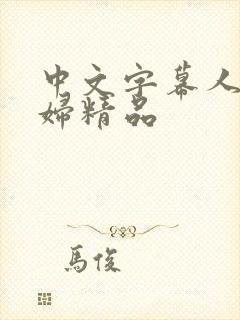 中文字幕人
婦精品
馬俊